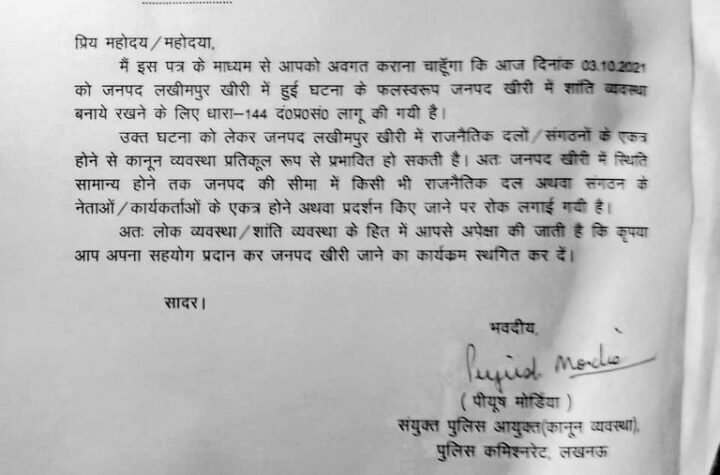 प्रिय महोदय/महोदया,
मैं इस पत्र के माध्यम से आपको अवगत कराना चाहूॅंगा कि आज दिनांक 03.10.2021
को जनपद लखीमपुर खीरी में हुई घटना के फलस्वरूप जनपद खीरी में शांति व्यवस्था
बनाये रखने के लिए धारा-144 दं०प्र०सं० लागू की गयी है।
उक्त घटना को लेकर जनपद लखीमपुर खीरी में राजनैतिक दलों/संगठनों के एकत्र
होने से कानून व्यवस्था प्रतिकूल रूप से प्रभावित हो सकती है। अतः जनपद खीरी में स्थिति
सामान्य होने तक जनपद की सीमा में किसी भी राजनैतिक दल अथवा संगठन के
नेताओं/कार्यकर्ताओं के एकत्र होने अथवा प्रदर्शन किए जाने पर रोक लगाई गयी है।
अतः लोक व्यवस्था/शांति व्यवस्था के हित में आपसे अपेक्षा की जाती है कि कृपया
आप अपना सहयोग प्रदान कर जनपद खीरी जाने का कार्यक्रम स्थगित कर दें।
सादर।
भवदीय,
(पीयूष मोर्डिया)
संयुक्त पुलिस आयुक्त(कानून व्यवस्था),
पुलिस कमिश्नरेट, लखनऊ